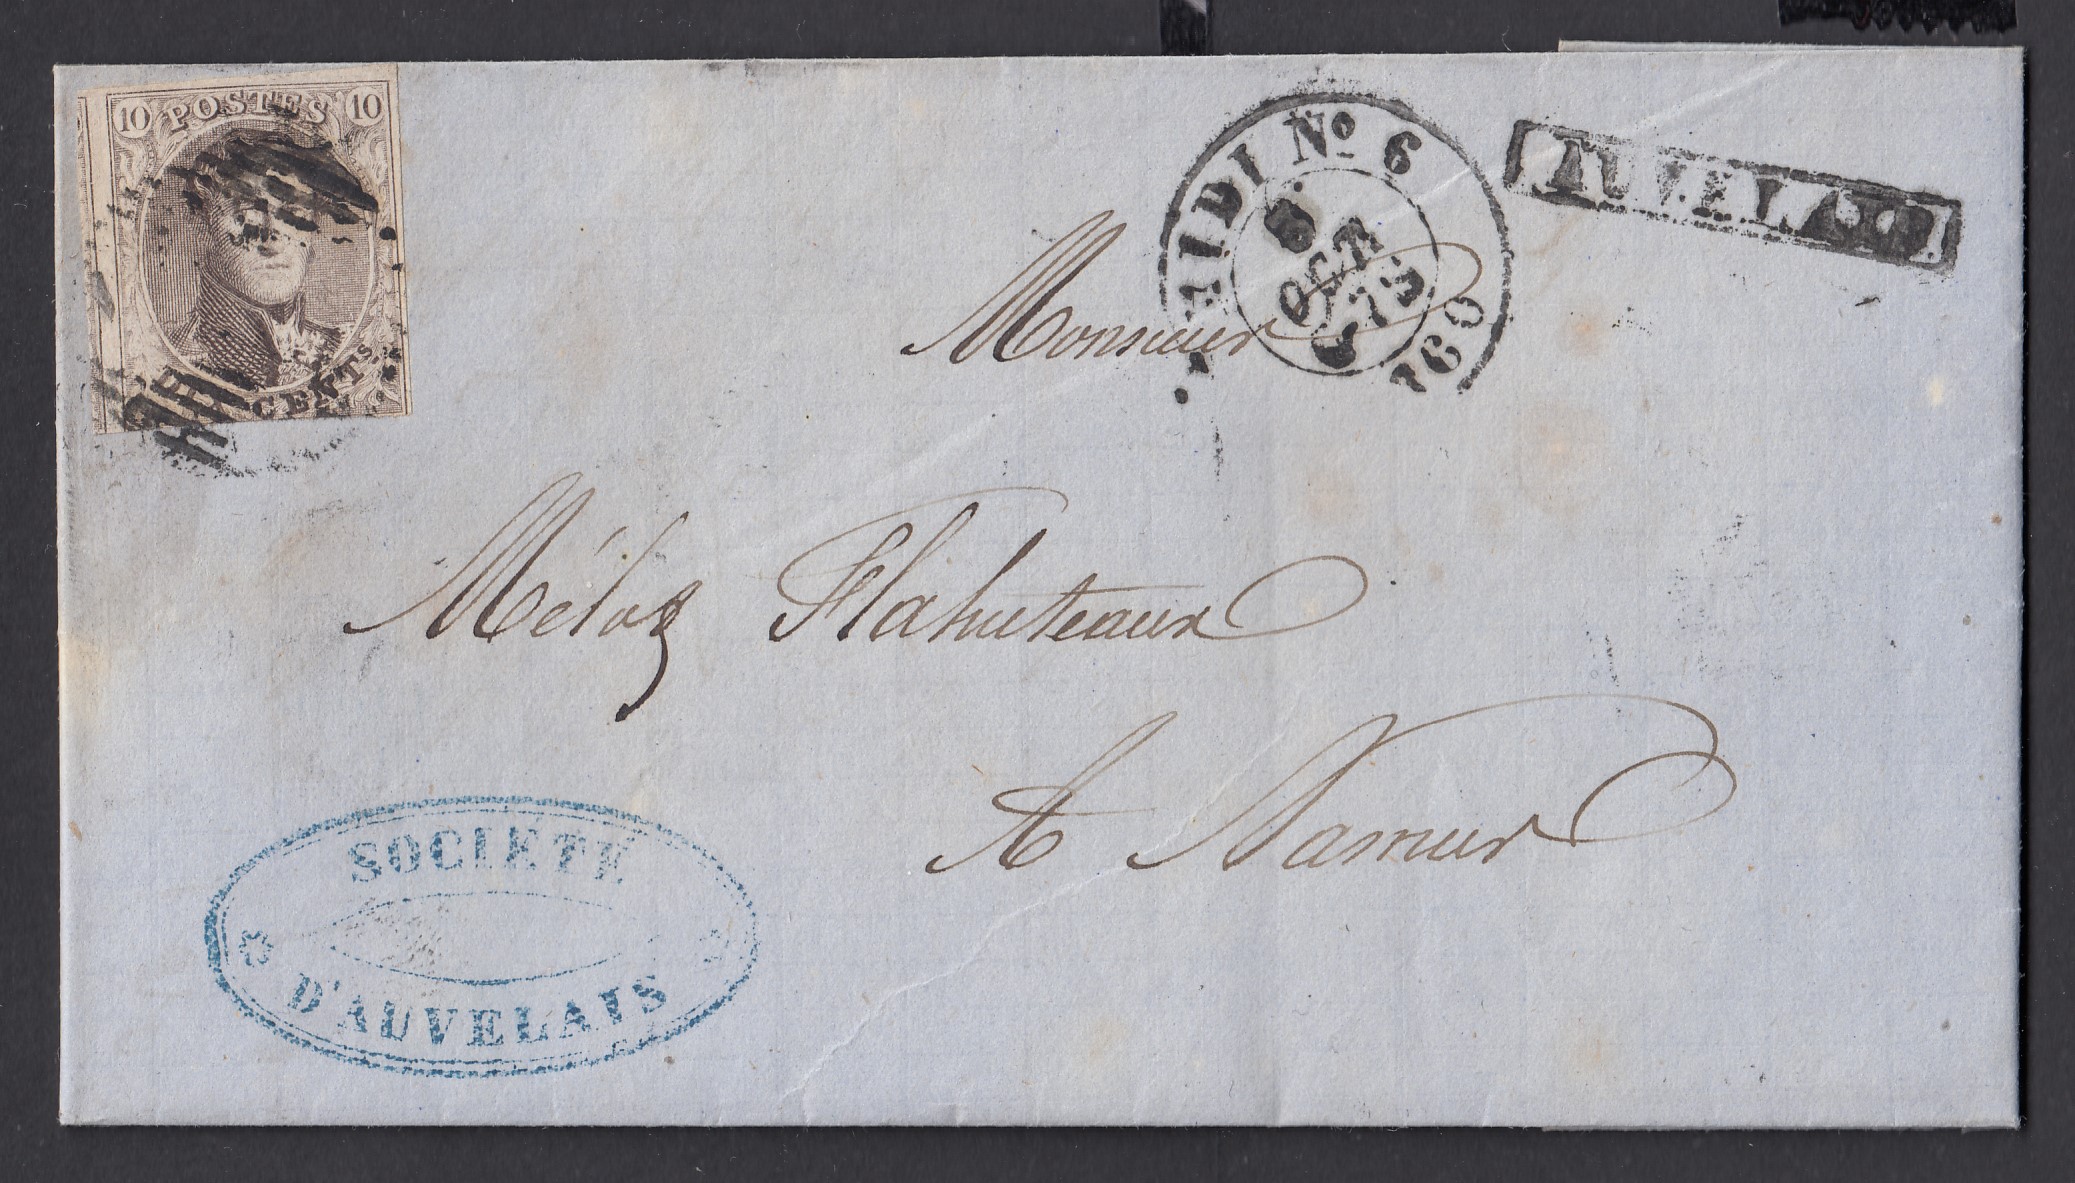 10 POSTES 10
CENTS
MIDI No 6
OCT
1860
AUVELAIS
Monsieur
Flahuteaux
A Namur
SOCIÉTÉ
D'AUVELAIS